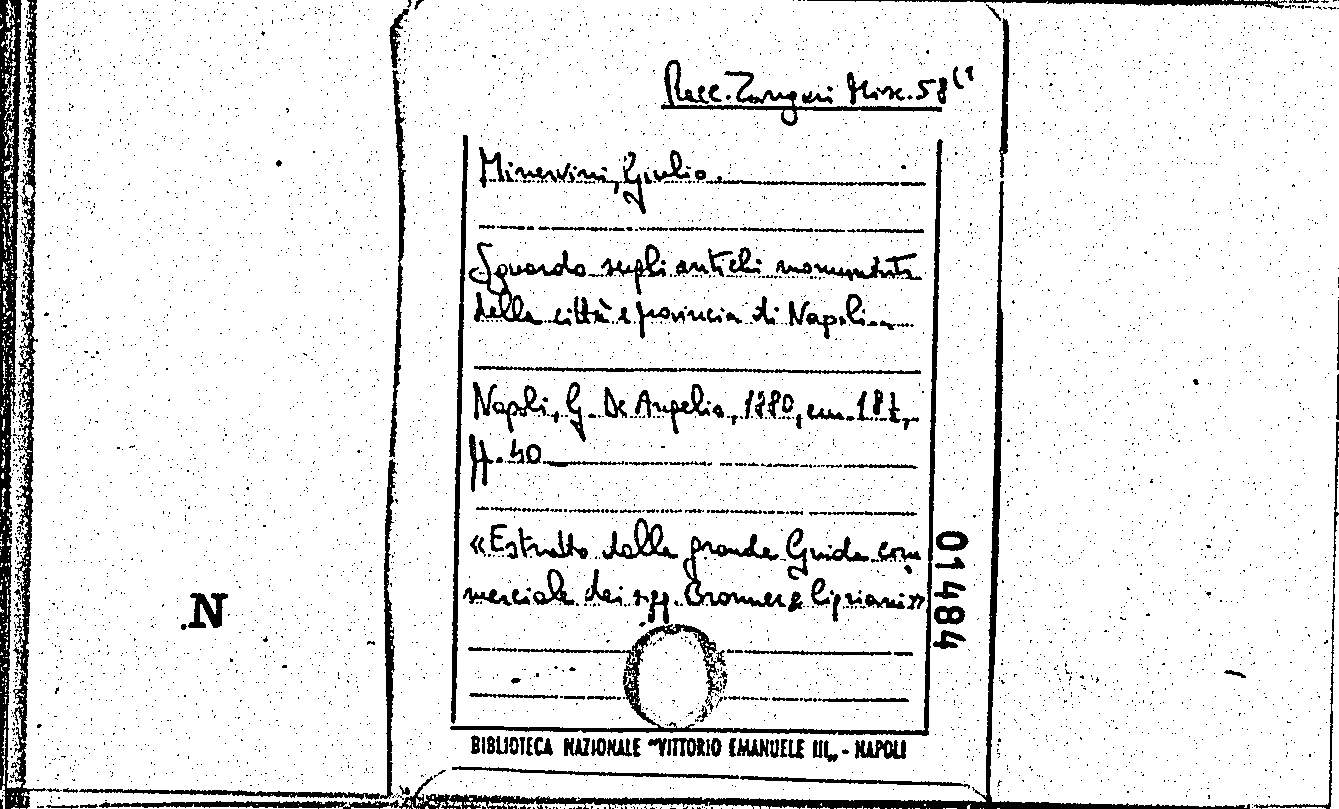 Racc. Zangari Misc. 58
Minervini, Giulio.
Sguardo sugli antichi monumenti
della città e provincia di Napoli.
Napoli, G. De Angelis, 1880, cm. 18½,
pp. 40
«Estratto dalla grande Guida com
merciale dei sigg. Bronner & Cipriani»
01484
N
BIBLIOTECA NAZIONALE "VITTORIO EMANUELE III„ - NAPOLI